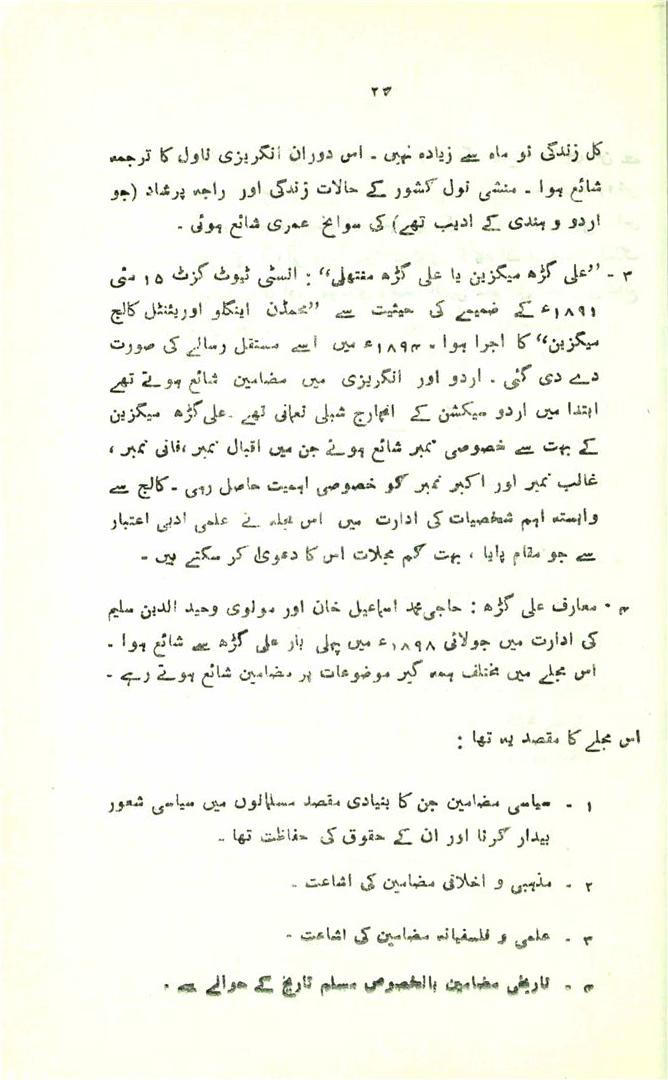 ۲۳
کل زندگی نو ماہ سے زیادہ نہیں ۔ اس دوران انگریزی ناول کا ترجمہ
شائع ہوا ۔ منشی نول کشور کے حالات زندگی اور راجہ پرشاد (جو
اردو و ہندی کے ادیب تھے) کی سوانح عمری شائع ہوئی ۔
۳ - ”علی گڑھ میگزین یا علی گڑھ منتھلی“ : انسٹی ٹیوٹ گزٹ ۱۵ مئی
۱۸۹۱ء کے ضمیمے کی حیثیت سے ”محمڈن اینگلو اوریئنٹل کالج
میگزین“ کا اجرا ہوا ۔ ۱۸۹۴ء میں اسے مستقل رسالے کی صورت
دے دی گئی ۔ اردو اور انگریزی میں مضامین شائع ہوتے تھے
ابتدا میں اردو سیکشن کے انچارج شبلی نعمانی تھے ۔ علی گڑھ میگزین
کے بہت سے خصوصی نمبر شائع ہوئے جن میں اقبال نمبر ، فانی نمبر ،
غالب نمبر اور اکبر نمبر کو خصوصی اہمیت حاصل رہی ۔ کالج سے
وابستہ اہم شخصیات کی ادارت میں اس مجلہ نے علمی ادبی اعتبار
سے جو مقام پایا ، بہت کم مجلات اس کا دعویٰ کر سکتے ہیں ۔
۴ - معارف علی گڑھ : حاجی محمد اسماعیل خان اور مولوی وحید الدین سلیم
کی ادارت میں جولائی ۱۸۹۸ء میں پہلی بار علی گڑھ سے شائع ہوا ۔
اس مجلے میں مختلف ہمہ گیر موضوعات پر مضامین شائع ہوتے رہے ۔
اس مجلے کا مقصد یہ تھا :
۱ - سیاسی مضامین جن کا بنیادی مقصد مسلمانوں میں سیاسی شعور
بیدار کرنا اور ان کے حقوق کی حفاظت تھا ۔
۲ - مذہبی و اخلاقی مضامین کی اشاعت ۔
۳ - علمی و فلسفیانہ مضامین کی اشاعت ۔
۴ - تاریخی مضامین بالخصوص مسلم تاریخ کے حوالے سے ۔